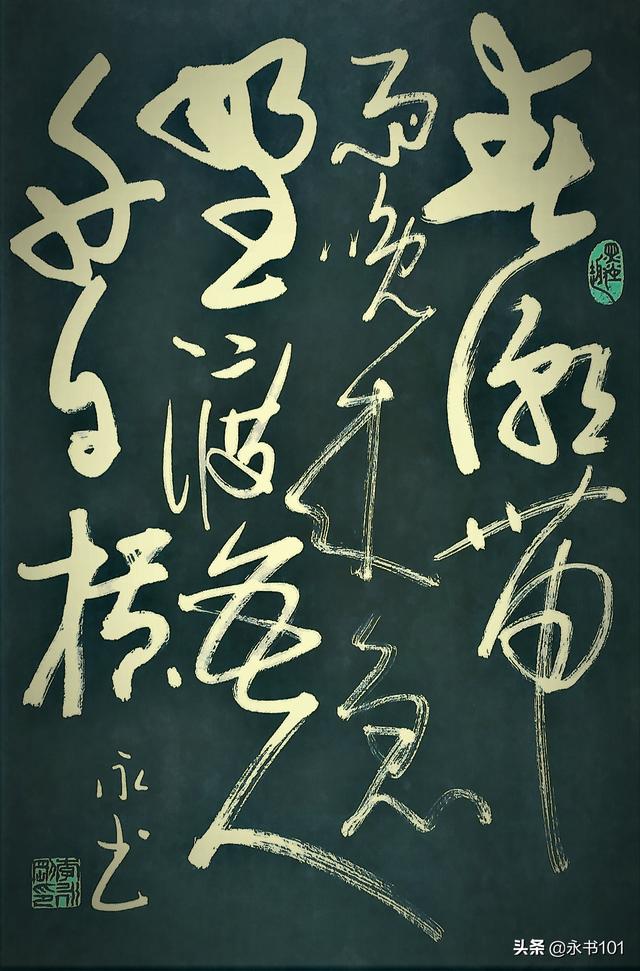 春潮带
雨晚来急
野渡无人
舟自横
永书
头条 @永书101